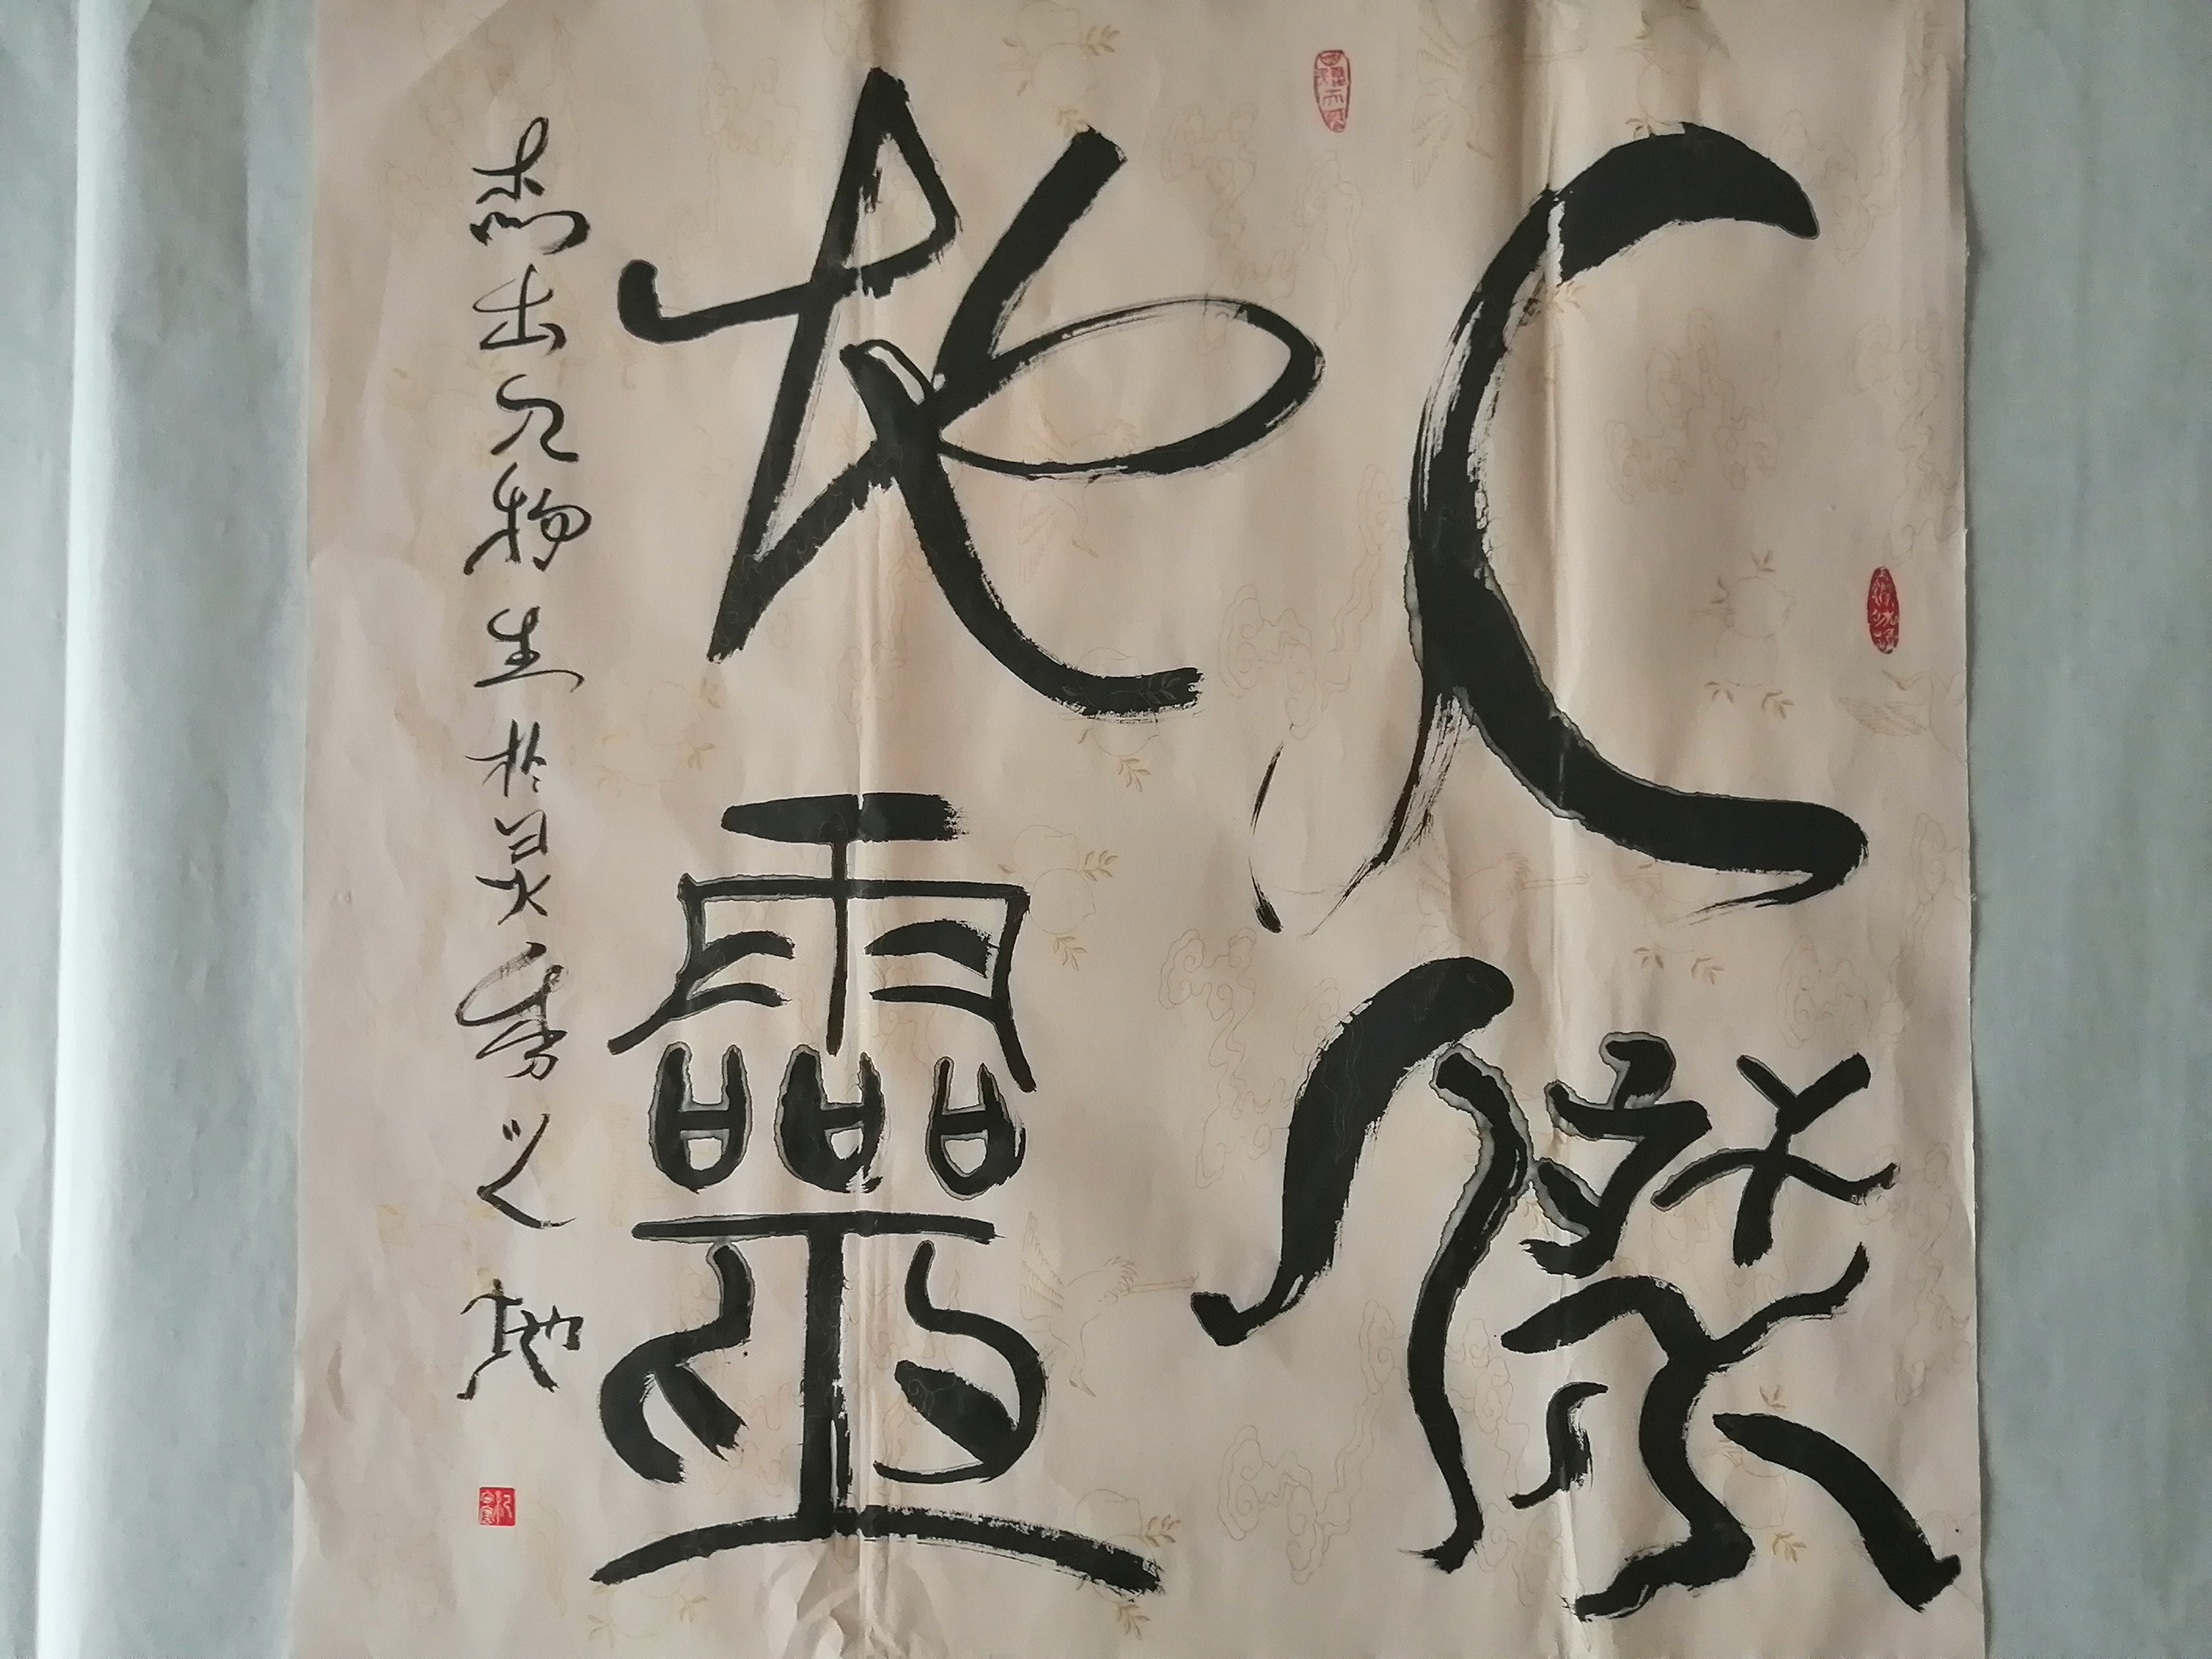 人傑
地靈
杰出人物生於灵秀之地